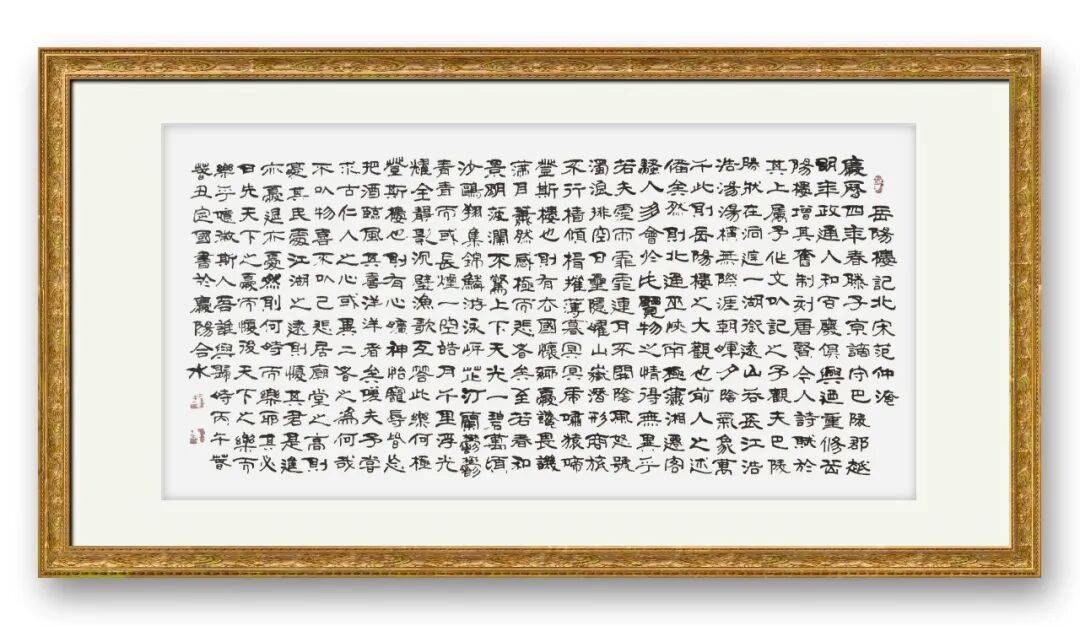 岳陽樓記北宋范仲淹
慶曆四年春滕子京謫守巴陵郡越
明年政通人和百廢俱興迺重修岳
陽樓增其舊制刻唐賢今人詩賦於
其上屬予作文以記之予觀夫巴陵
勝狀在洞庭一湖銜遠山吞長江浩
浩湯湯橫無際涯朝暉夕陰氣象萬
千此則岳陽樓之大觀也前人之述
備矣然則北通巫峽南極瀟湘遷客
騷人多會於此覽物之情得無異乎
若夫霪雨霏霏連月不開陰風怒號
濁浪排空日星隱曜山嶽潛形商旅
不行檣傾楫摧薄暮冥冥虎嘯猿啼
登斯樓也則有去國懷鄉憂讒畏譏
滿目蕭然感極而悲者矣至若春和
景明波瀾不驚上下天光一碧萬頃
沙鷗翔集錦鱗游泳岸芷汀蘭鬱鬱
青青而或長煙一空皓月千里浮光
耀金靜影沉璧漁歌互答此樂何極
登斯樓也則有心曠神怡寵辱皆忘
把酒臨風其喜洋洋者矣嗟夫予嘗
求古仁人之心或異二者之為何哉
不以物喜不以己悲居廟堂之高則
憂其民處江湖之遠則憂其君是進
亦憂退亦憂然則何時而樂耶其必
曰先天下之憂而憂後天下之樂而
樂乎噫微斯人吾誰與歸時丙午
春丑定國書於慶陽合水